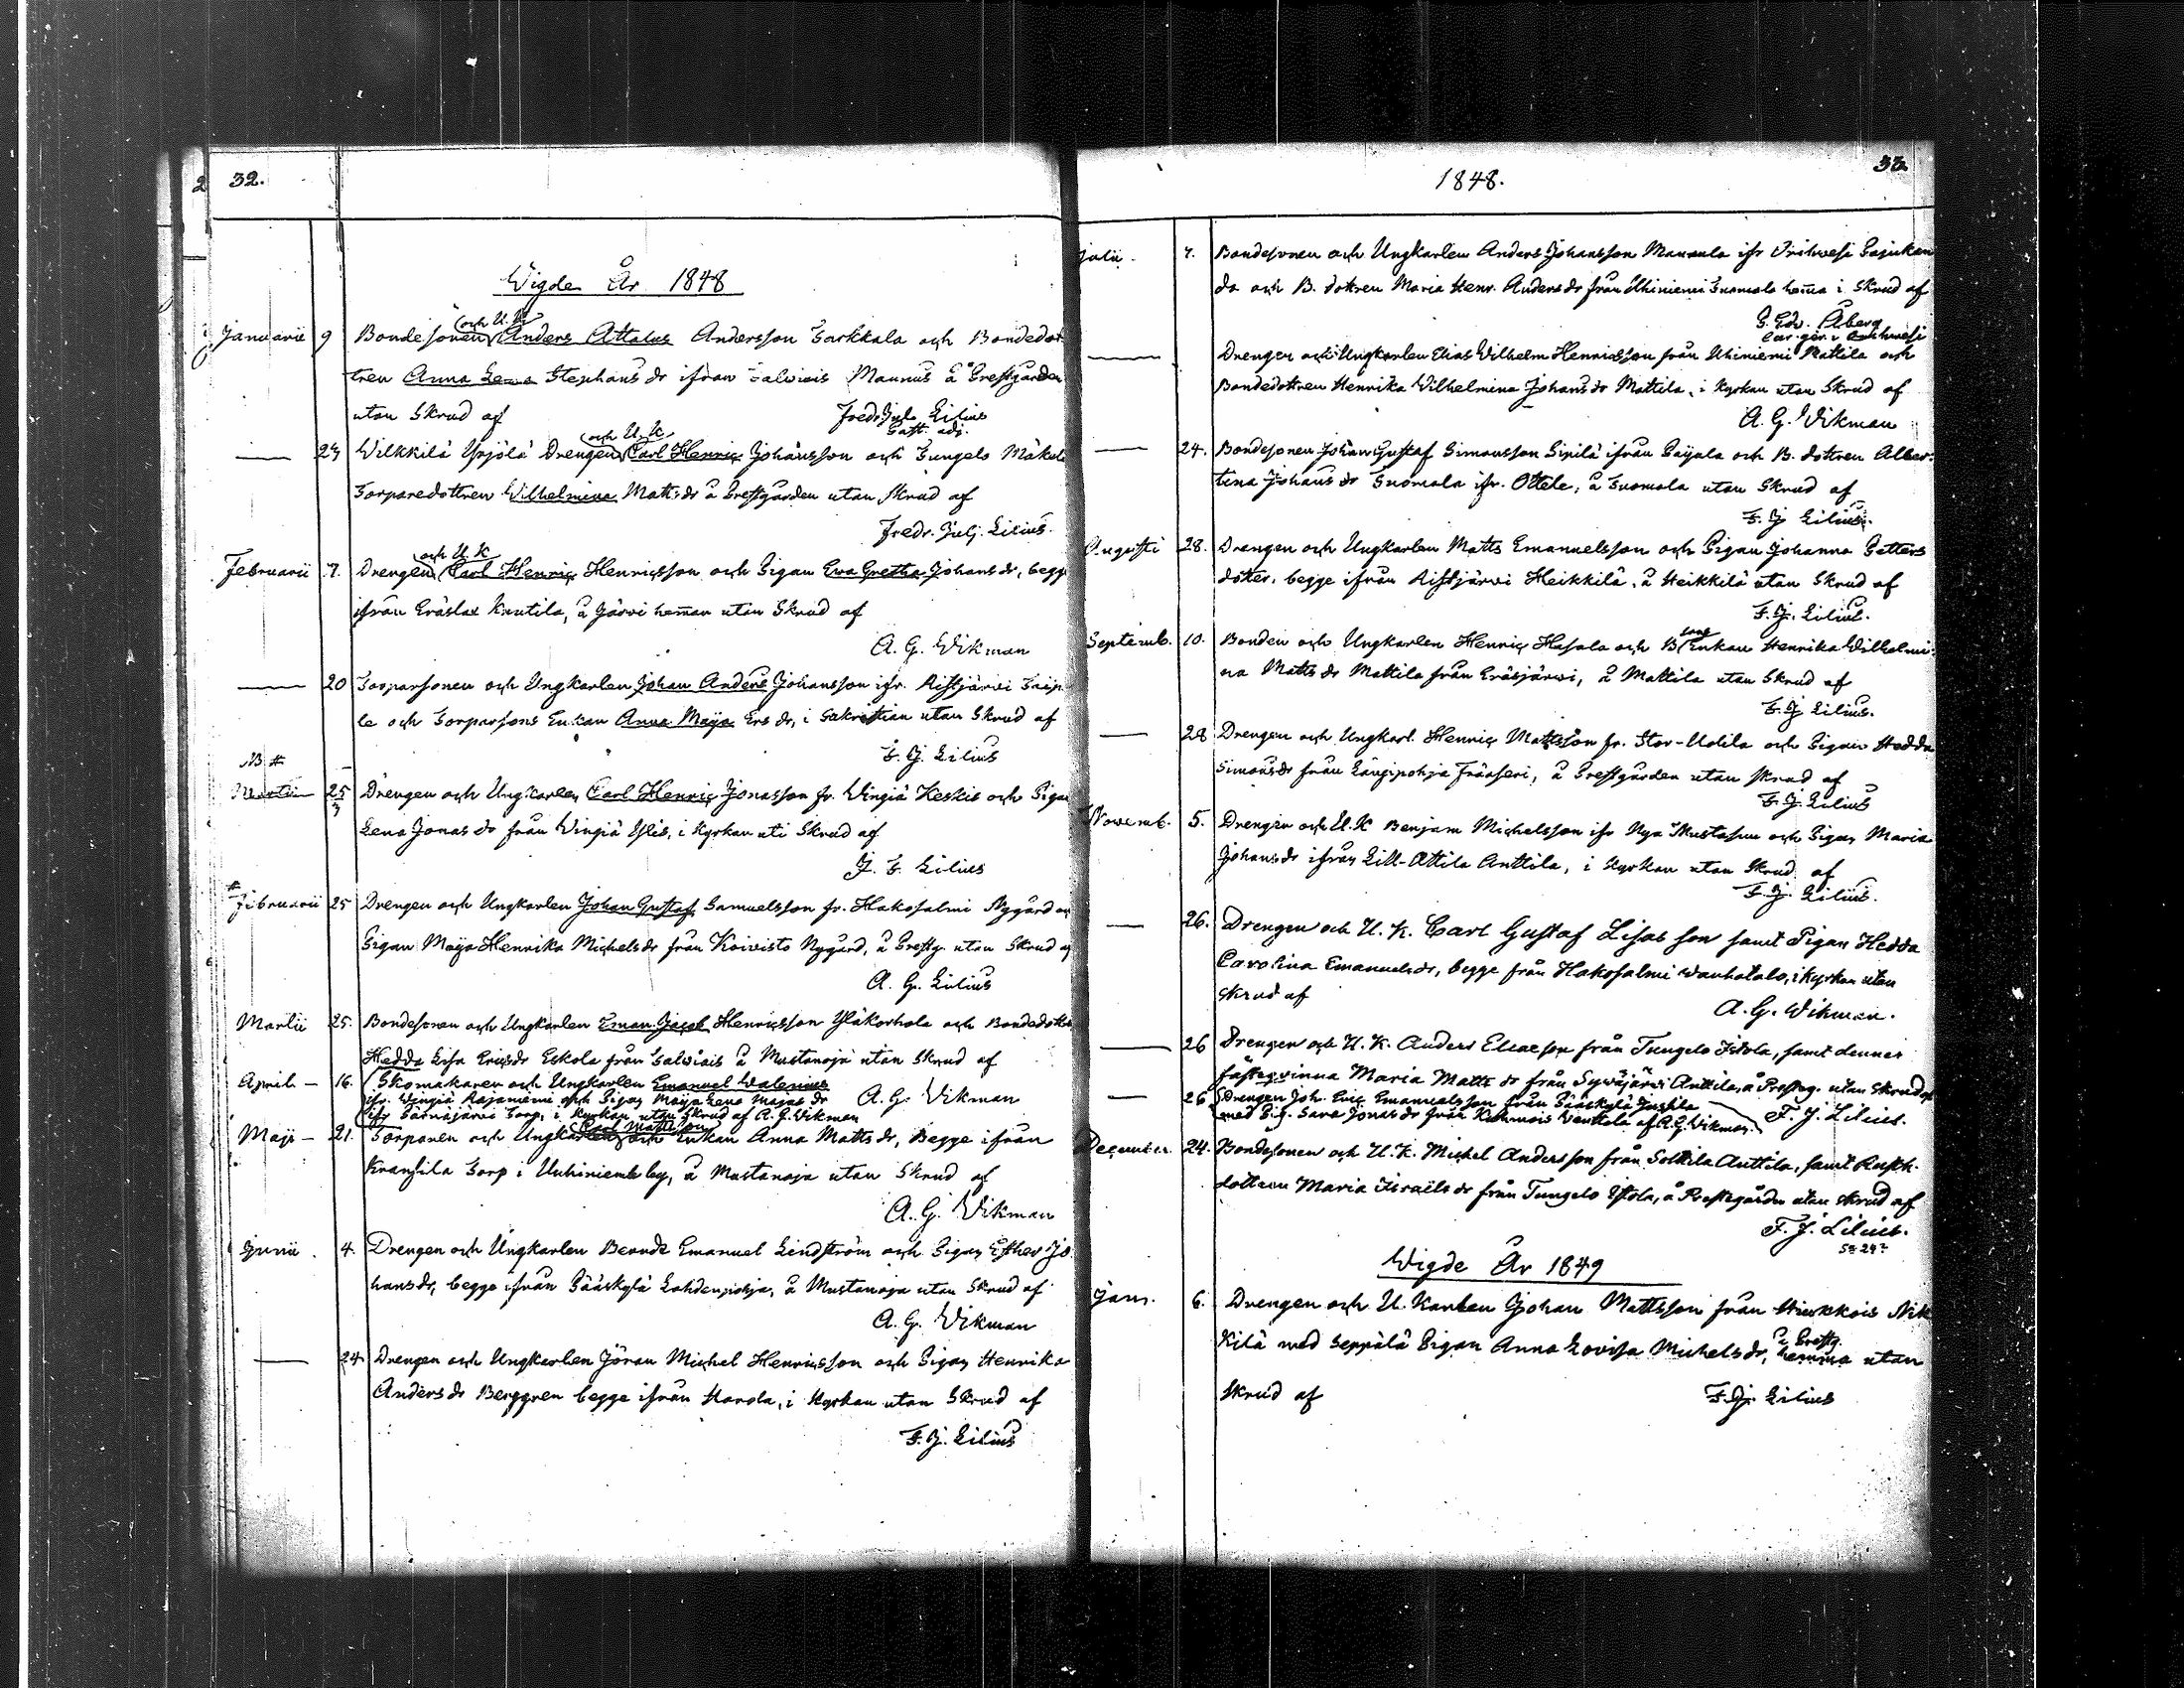 32.
Wigde År 1848
Januarii 9 Bondesonen och U. K. Anders Attalus Andersson Sarkkala och Bondedot
tren Anna Lena Stephans dr ifran Salwiais Mannus å Prestgården
utan Skrud af Fredr. Julj. Lilius
Past. adj.
24 Wilkkilä Yrjölä Drengen och U. K. Carl Henric Johansson och Tungelo Mäkelä
Torparedottren Wilhelmina Matts dr å Prestgården utan Skrud af
Fredr. Julj. Lilius.
Februarii 7. Drengen och U. K Carl Henric Henricsson och Pigan Ewa Gretha Johans dr, begge
ifrån Eräslax Knutila, å Järvi hemman utan Skrud af
A. G. Wikman
20 Torparsonen och Ungkarlen Johan Anders Johansson ifr. Ristjärvi
le och Torparsons Enkan Anna Maija Ers dr, i Sakristian utan Skrud af
F. J. Lilius
NB #
Martii 25 Drengen och Ungkarlen Carl Henric Jonasson fr. Wingiä Keskis och Pigan
Lena Jonas dr från Wingiä Ylis, i Kyrkan uti Skrud af
J. F. Lilius
# Februarii 25 Drengen och Ungkarlen Johan Gustaf Samuelsson fr. Hakosalmi Nygård och
Pigan Maja Henrika Michels dr från Koivisto Nygård, å Prestg. utan Skrud af
A. G. Lilius
Martii 25. Bondesonen och Ungkarlen Eman. Jacob Henricsson Yläkorhola och Bondedottr
Hedda Lisa Erics dr Eskola från Salwiais å Mustanoja utan Skrud af
A. G. Wikman
April — 16. Skomakaren och Ungkarlen Emanuel Walenius
ifr. Wingiä Rajaniemi och Pigan Maija Lena Majas dr
ifr. Särnäjärvi Torp, i Kyrkan utan Skrud af A. G. Wikman
Maji — 21. Torparen och Ungkarlen Carl Mattsson och Enkan Anna Matts dr, Begge ifrån
Kransila Torp i Uuhiniemi by, å Mustanoja utan Skrud af
A. G. Wikman
Junii. 4. Drengen och Ungkarlen Berndt Emanuel Lindström och Pigan Esther Jo
hans dr, begge ifrån Pääskylä Lahdenpohja, å Mustanoja utan Skrud af
A. G. Wikman
24 Drengen och Ungkarlen Jöran Michel Henricsson och Pigan Henrika
Anders dr Berggren begge ifrån Harola, i Kyrkan utan Skrud af
F. J. Lilius
1848.
33.
Julii. 7. Bondesonen och Ungkarlen Anders Johansson Mannula ifr Urihwesi
da och B. dottren Maria Henr. Anders dr från Uhiniemi Suomela hema i Skrud af
G. Edv. Åberg
Drengen och Ungkarlen Elias Wilhelm Henricsson från Uhiniemi Mattila och
Bondedottren Henrika Wilhelmina Johans dr Mattila, i Kyrkan utan Skrud af
A. G. Wikman
24. Bondesonen Johan Gustaf Simonsson Sipilä ifrån Paijala och B. dottren Alber-
tina Johans dr Suomala ifr. Ottele, å Suomola utan Skrud af
F. J. Lilius.
Augusti 28. Drengen och Ungkarlen Matts Emanuelsson och Pigan Johanna Petters
dotter, begge ifrån Ristjärvi Heikkilä, å Heikkilä utan Skrud af
F. J. Lilius.
Septemb. 10. Bonden och Ungkarlen Henric Hasala och B Enkan Henrika Wilhelmi-
na Matts dr Mattila från Eräsjärvi, å Mattila utan Skrud af
F. J. Lilius.
28 Drengen och Ungkarl. Henric Mattsson fr. Stor-Uotila och Pigan Hedda
Simons dr från Längipohja Fräseri, å Prestgården utan Skrud af
F. J. Lilius
Novemb. 5. Drengen och U. K Benjam Michelsson ifr Nya Mustasuu och Pigan Maria
Johans dr ifrån Lill-Attila Anttila, i Kyrkan utan Skrud af
F. J. Lilius.
26. Drengen och U. K. Carl Gustaf Lisas son samt Pigan Hedda
Carolina Emanuels dr, begge från Hakosalmi Wanhatalo, i kyrkan utan
Skrud af
A. G. Wikman.
26 Drengen och U. K. Anders Eliaeson från Tungelo Istola, samt dennes
fästeqvinna Maria Matts dr från Sywäjärvi Anttila, å Prestg. utan skrud af
F. J. Lilius.
26 Drengen Joh. Eric Emanuelsson från Pääskylä Jussila
med Pig. Sara Jonas dr från Wentola af A. G. Wikman.
December 24. Bondesonen och U. K. Michel Andersson från Sottila Anttila, samt Rusth.
dottren Maria Israels dr från Tungelo Istola, å Prestegården utan skrud af
F. J. Lilius.
Wigde År 1849
Janr. 6. Drengen och U. Karlen Johan Mattsson från Hirvkkois Nik
kilä med Seppälä Pigan Anna Lovisa Michels dr, å Prestg. hemma utan
Skrud af F. J. Lilius